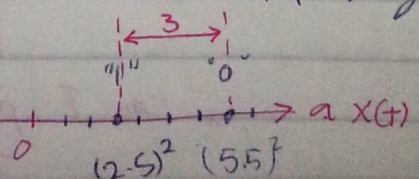 3
"1" "0"
0 x(t)
(2.5)² (5.5)²